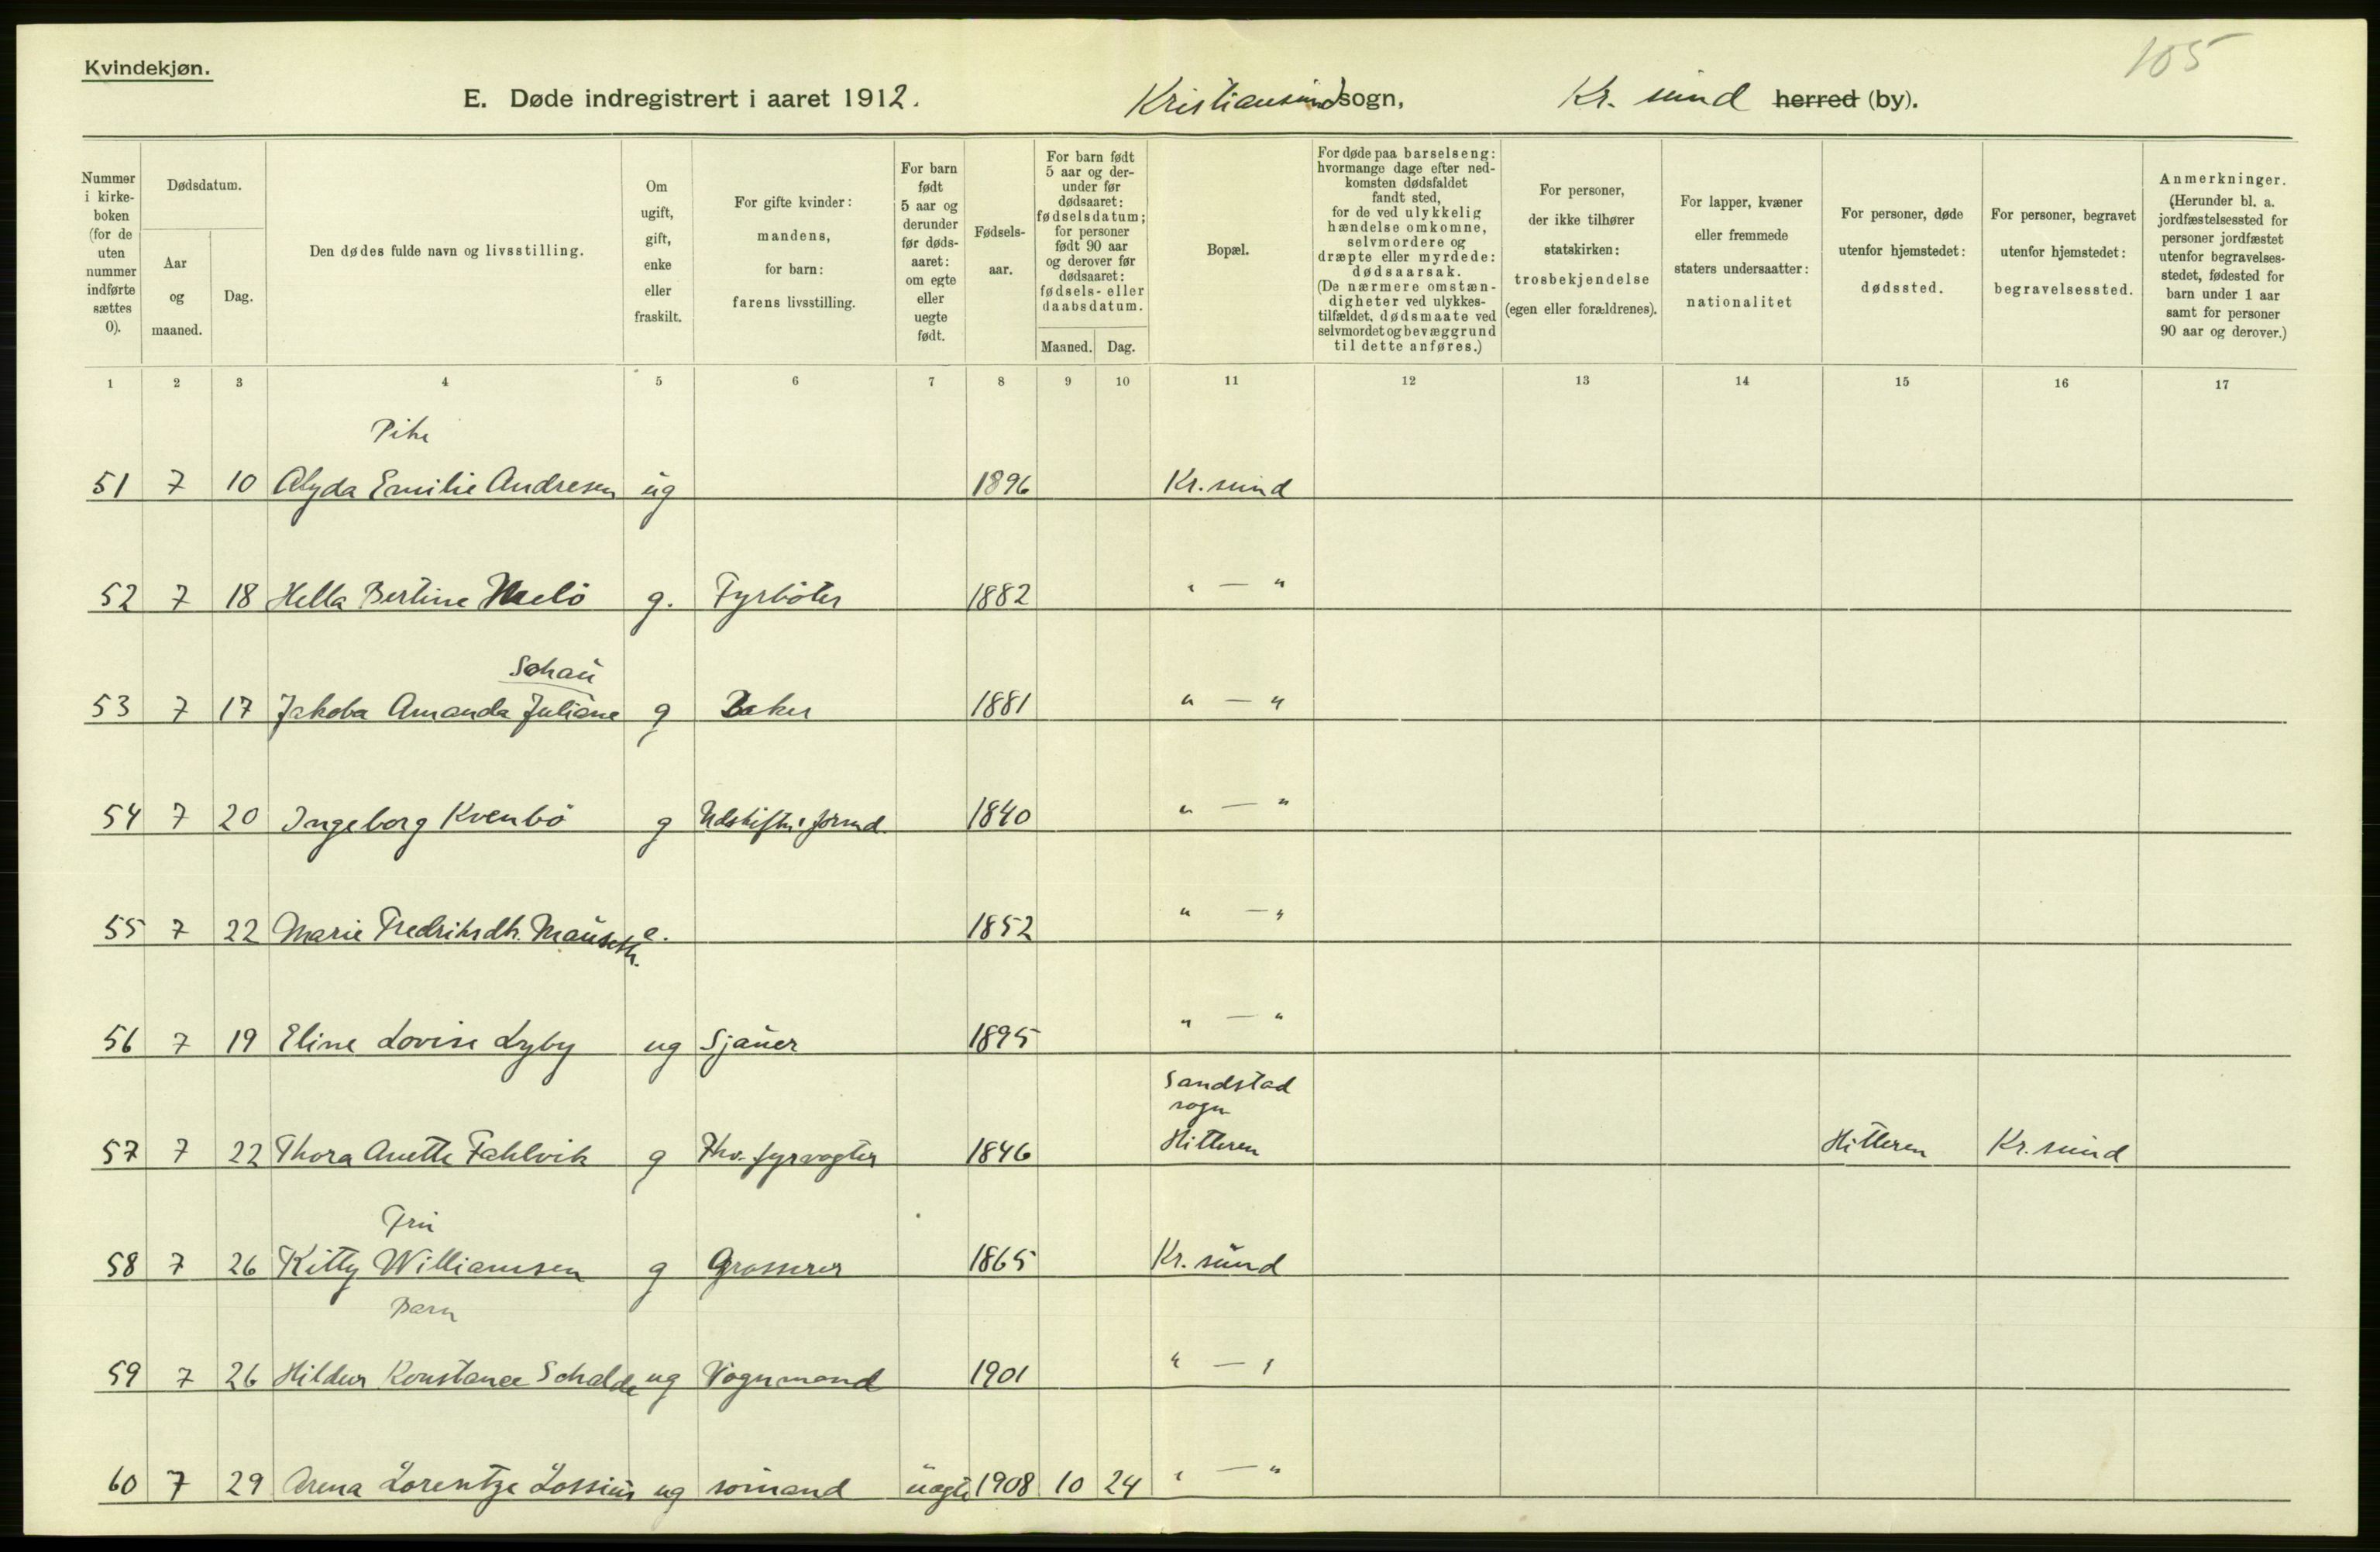 105
Kvindekjøn.
E. Døde indregistrert i aaret 1912. Kristiansund sogn, Kr. sund herred (by).
Nummer i kirke- boken (for de uten nummer indførte sættes 0).
Dødsdatum.
Aar og maaned.
Dag.
Den dødes fulde navn og livsstilling.
Om ugift, gift, enke eller fraskilt.
For gifte kvinder: mandens, for barn: farens livsstilling.
For barn født 5 aar og derunder før døds- aaret: om egte eller uegte født.
Fødsels- aar.
For barn født 5 aar og der- under før dødsaaret: fødselsdatum; for personer født 90 aar og derover før dødsaaret: fødsels- eller daabsdatum.
Maaned. Dag.
Bopæl.
For døde paa barselseng: hvormange dage efter ned- komsten dødsfaldet fandt sted, for de ved ulykkelig hændelse omkomne, selvmordere og dræpte eller myrdede: dødsaarsak. (De nærmere omstæn- digheter ved ulykkes- tilfældet, dødsmaate ved selvmordet og bevæggrund til dette anføres.)
For personer, der ikke tilhører statskirken: trosbekjendelse (egen eller forældrenes).
For lapper, kvæner eller fremmede staters undersaatter: nationalitet
For personer, døde utenfor hjemstedet: dødssted.
For personer, begravet utenfor hjemstedet: begravelsessted.
Anmerkninger. (Herunder bl. a. jordfæstelsessted for personer jordfæstet utenfor begravelses- stedet, fødested for barn under 1 aar samt for personer 90 aar og derover.)
1 2 3 4 5 6 7 8 9 10 11 12 13 14 15 16 17
Pike
51 7 10 Alyda Emilie Andresen ug 1896 Kr. sund
52 7 18 Hella Bertine Melö g. Fyrböter 1882 " — "
Schau
53 7 17 Jakoba Amanda Juliane g Baker 1881 " — "
54 7 20 Ingeborg Kvenbö g Udskiftn. formd. 1840 " — "
55 7 22 Marie Fredriksdt. Mauseth. e. 1852 " — "
56 7 19 Eline Lovise Lyby ug Sjauer 1895 " — "
Sandstad
sogn
57 7 22 Thora Anette Fahlvik g Fhv. fyrvogter 1846 Hitteren Hitteren Kr. sund
Fru
58 7 26 Kitty Williamsen g Grosserer 1865 Kr. sund
Barn
59 7 26 Hildur Konstance Schalde ug Vognmand 1901 " — "
60 7 29 Arena Lorentze Lossius ug sömand uægte 1908 10 24 " — "